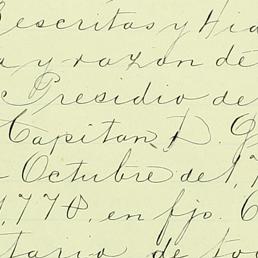 escritas y Hid
a y razon de
Presidio de
Capitan D.
Octubre de 1,7
1,778, en fjo.
tario de to